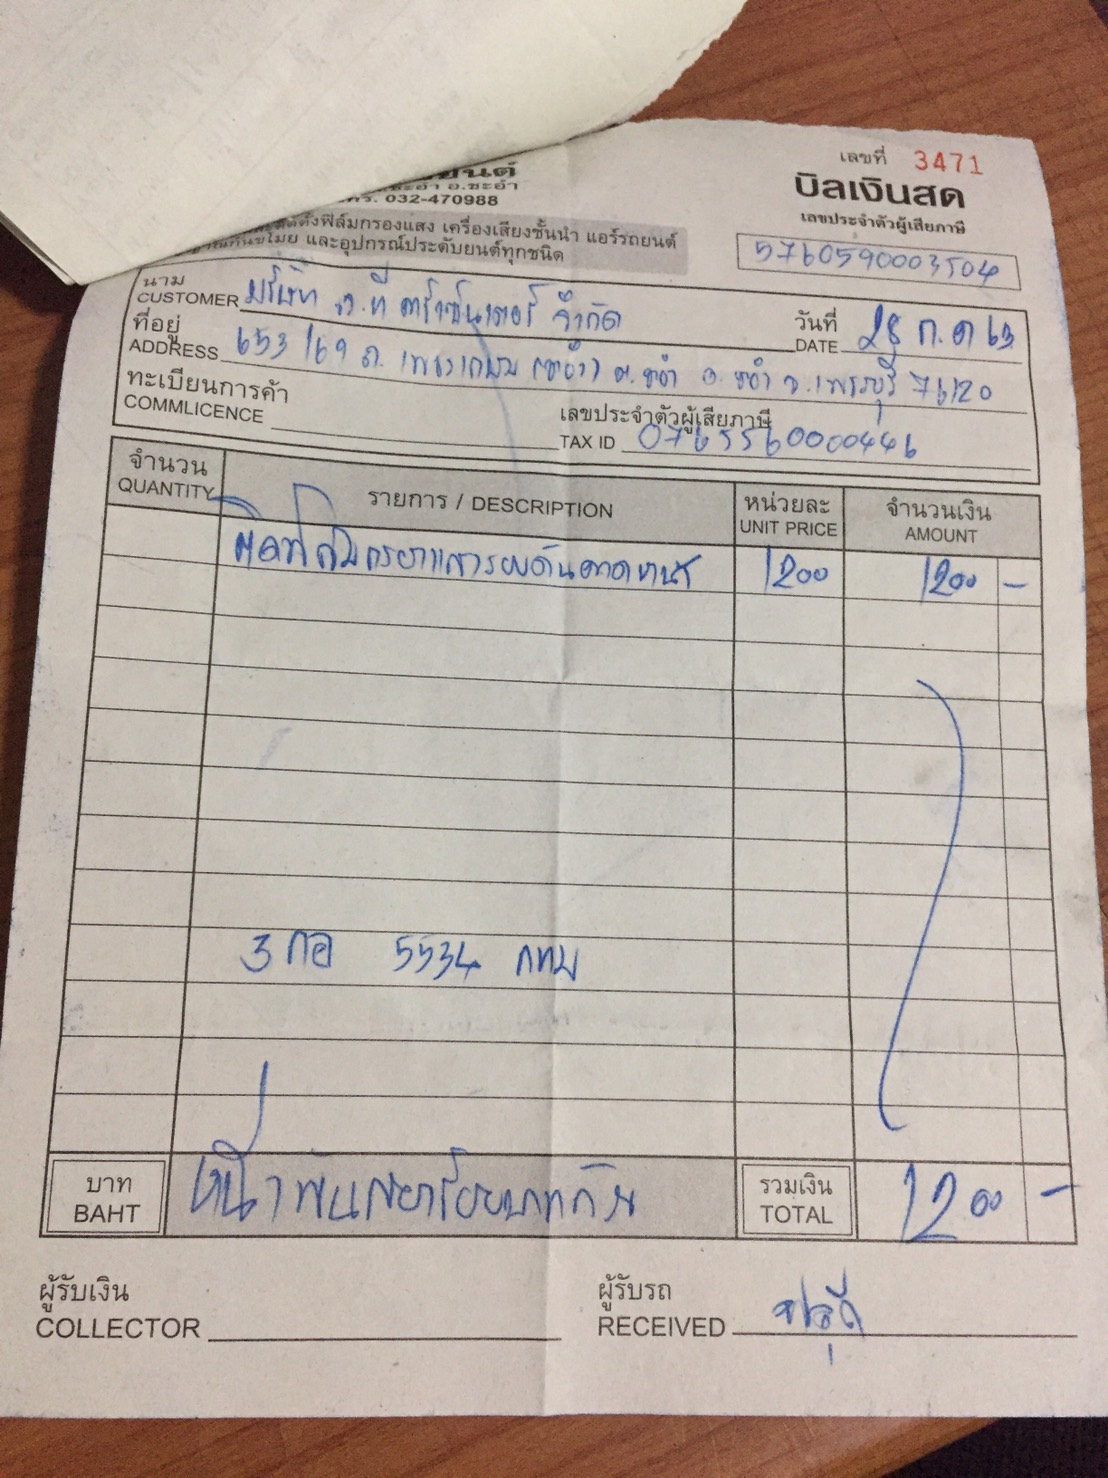 เลขที่ 3471
บิลเงินสด
เลขประจำตัวผู้เสียภาษี
5760590003504
ยนต์
อ.ชะอำ
โทร. 032-470988
ติดตั้งฟิล์มกรองแสง เครื่องเสียงชั้นนำ แอร์รถยนต์
กันขโมย และอุปกรณ์ประดับยนต์ทุกชนิด
นาม
CUSTOMER บริษัท อ.ที คาร์เซ็นเตอร์ จำกัด
วันที่
DATE 28 ก.ค 63
ที่อยู่
ADDRESS 653/69 ถ.เพชรเกษม ต.ชะอำ อ.ชะอำ จ.เพชรบุรี 76120
ทะเบียนการค้า
COMMLICENCE
เลขประจำตัวผู้เสียภาษี
TAX ID 0765560000446
จำนวน
QUANTITY
รายการ / DESCRIPTION
หน่วยละ
UNIT PRICE
จำนวนเงิน
AMOUNT
ติดฟิล์มกรองแสงรถยนต์ 1200 1200 -
3 กอ 5534 กทม
บาท
BAHT
หนึ่งพันสองร้อยบาทถ้วน
รวมเงิน
TOTAL
1200 -
ผู้รับเงิน
COLLECTOR
ผู้รับรถ
RECEIVED